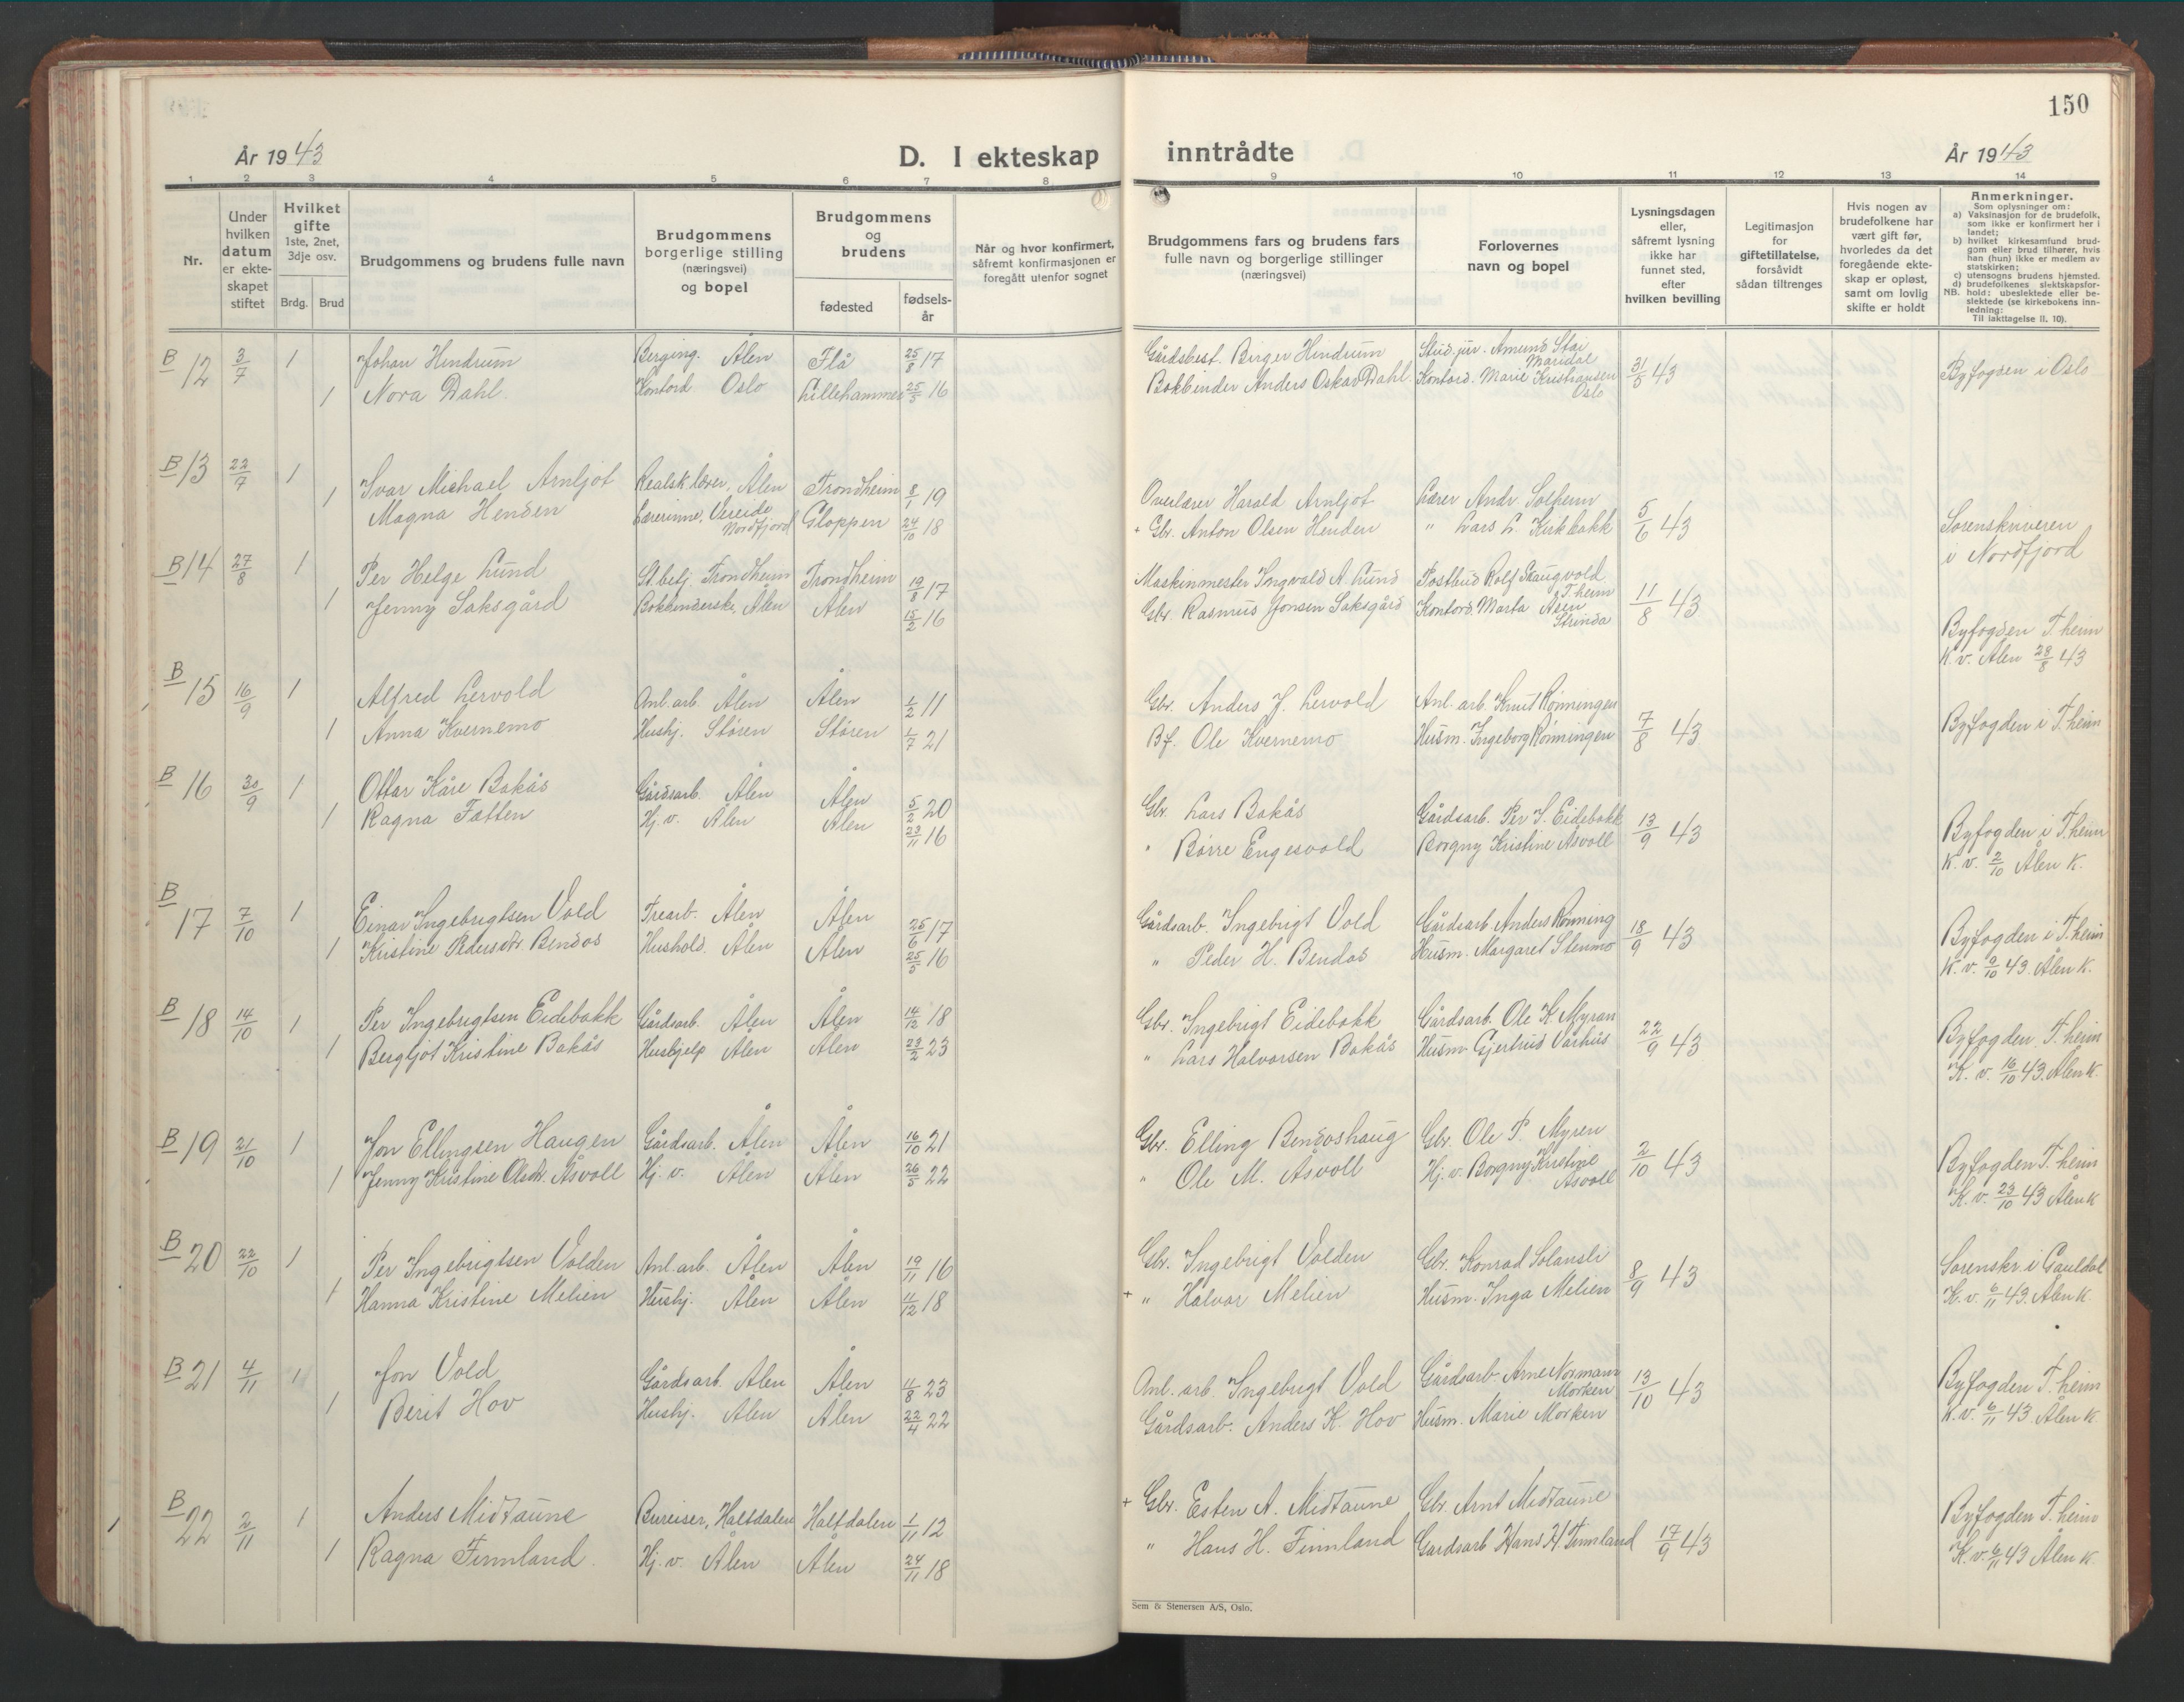 150
År 1943
D. I ekteskap
inntrådte
År 1943
1 2 3 4 5 6 7 8 9 10 11 12 13 14
Nr.
Under
hvilken
datum
er ekte-
skapet
stiftet
Hvilket
gifte
1ste, 2net,
3dje osv.
Brdg. Brud
Brudgommens og brudens fulle navn
Brudgommens
borgerlige stilling
(næringsvei)
og bopel
Brudgommens
og
brudens
fødested
fødsels-
år
Når og hvor konfirmert,
såfremt konfirmasjonen er
foregått utenfor sognet
Brudgommens fars og brudens fars
fulle navn og borgerlige stillinger
(næringsvei)
Forlovernes
navn og bopel
Lysningsdagen
eller,
såfremt lysning
ikke har
funnet sted,
efter
hvilken bevilling
Legitimasjon
for
giftetillatelse,
forsåvidt
sådan tiltrenges
Hvis nogen av
brudefolkene har
vært gift før,
hvorledes da det
foregående ekte-
skap er opløst,
samt om lovlig
skifte er holdt
Anmerkninger.
Som oplysninger om:
a) Vaksinasjon for de brudefolk,
som ikke er konfirmert her i
landet;
b) hvilket kirkesamfund brud-
gom eller brud tilhører, hvis
han (hun) ikke er medlem av
statskirken;
c) utensogns brudens hjemsted.
d) brudefolkenes slektskapsfor-
NB. hold: ubeslektede eller be-
slektede (se kirkebokens inn-
ledning:
Til iakttagelse II. 10).
B 12 3/7 1 Johan Hindrum Berging. Ålen Flå 25/8 17 Gårdsbest. Birger Hindrum Stud. jur. Amund Stai
Maridal
1 Nora Dahl. Kontord. Oslo Lillehammer 25/5 16 Bokbinder Anders Oskar Dahl. Kontord. Marie Kristiansen
Oslo 31/5 43 Byfogden i Oslo
B 13 22/7 1 Ivar Michael Arnljot Realsk.lærer, Ålen Trondheim 8/1 19 Overlærer Harald Arnljot Lærer Andr. Solheim
1 Magna Henden Lærerinne, Vereide
Nordfjord Gloppen 24/10 18 + Gbr. Anton Olsen Henden " Lars L. Kirkbakk 5/6 43 Sorenskriveren
i Nordfjord
B 14 27/8 1 Per Helge Lund St.betj. Trondheim Trondheim 19/8 17 Maskinmester Ingvald A. Lund Postbud Rolf Skaugvold
T.heim
1 Jenny Saksgård Bokbinderske, Ålen Ålen 15/2 16 Gbr. Rasmus Jonsen Saksgård Kontord. Marta Åsen
Strinda 11/8 43 Byfogden T.heim
K.v. Ålen 28/8 43
B 15 16/9 1 Alfred Lervold Anl.arb. Ålen Ålen 1/2 11 Gbr. Anders J. Lervold Anl.arb. Knut Rønningen
1 Anna Kvernemo Hushj. Støren Støren 1/7 21 Bf. Ole Kvernemo Husm. Ingeborg Rønningen 7/8 43 Byfogden i T.heim
B 16 30/9 1 Ottar Kåre Bakås Gårdsarb. Ålen Ålen 5/2 20 Gbr. Lars Bakås Gårdsarb. Per I. Eidebakk
1 Ragna Fatten Hj.v. Ålen Ålen 23/11 16 " Børre Engesvold Borgny Kristine Åsvoll 13/9 43 Byfogden i T.heim
K.v. 2/10 Ålen K.
B 17 7/10 1 Einar Ingebrigtsen Vold Trearb. Ålen Ålen 25/6 17 Gårdsarb. Ingebrigt Vold Gårdsarb. Anders Rønning
1 Kristine Pedersdtr. Bendos Hushold. Ålen Ålen 25/5 16 " Peder H. Bendos Husm. Margaret Stenmo 18/9 43 Byfogden i T.heim
K.v. 9/10 43. Ålen K.
B 18 14/10 1 Per Ingebrigtsen Eidebakk Gårdsarb. Ålen Ålen 14/12 18 Gbr. Ingebrigt Eidebakk Gårdsarb. Ole K. Myran
1 Bergljot Kristine Bakås Hushjelp Ålen Ålen 23/2 23 " Lars Halvorsen Bakås Husm. Gjertrud Vårhus 22/9 43 Byfogden T.heim
K.v. 16/10 43. Ålen K.
B 19 21/10 1 Jon Ellingsen Haugen Gårdsarb. Ålen Ålen 16/10 21 Gbr. Elling Bendoshaug Gbr. Ole P. Myren
1 Jenny Kristine Olsdtr. Åsvoll Hj.v. Ålen Ålen 26/5 22 " Ole M. Åsvoll Hj.v. Borgny Kristine
Åsvoll 2/10 43 Byfogden T.heim
K.v. 23/10 43 Ålen K
B 20 22/10 1 Per Ingebrigtsen Volden Anl.arb. Ålen Ålen 19/11 16 Gbr. Ingebrigt Volden Gbr. Konrad Solansli
1 Hanna Kristine Melien Hushj. Ålen Ålen 11/12 18 + " Halvor Melien Husm. Inga Melien 8/9 43 Sorenskr. i Gauldal
K.v. 6/11 43. Ålen K.
B 21 4/11 1 Jon Vold Gårdsarb. Ålen Ålen 11/8 23 Anl.arb. Ingebrigt Vold Gårdsarb. Arne Normann
Morken
1 Berit Hov Hushj. Ålen Ålen 22/4 22 Gårdsarb. Anders K. Hov Husm. Marie Morken 13/10 43 Byfogden T.heim
K.v. 6/11 43. Ålen K
1 B 22 2/11 1 Anders Midtaune Bureiser, Haltdalen Haltdalen 1/11 12 + Gbr. Esten A. Midtaune Gbr. Arnt Midtaune
1 Ragna Finnland. Hj.v. Ålen Ålen 24/11 18 " Hans H. Finnland Gardsarb Hans H. Finnland 17/9 43 Byfogden T.heim
K.v. 6/11 43 Ålen K.
Sem & Stenersen A/S, Oslo.